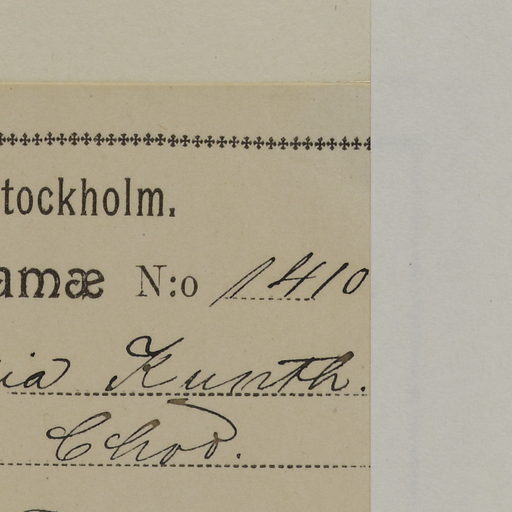 tockholm.
amæ N:o 1410
ia Kunth.
Chod.